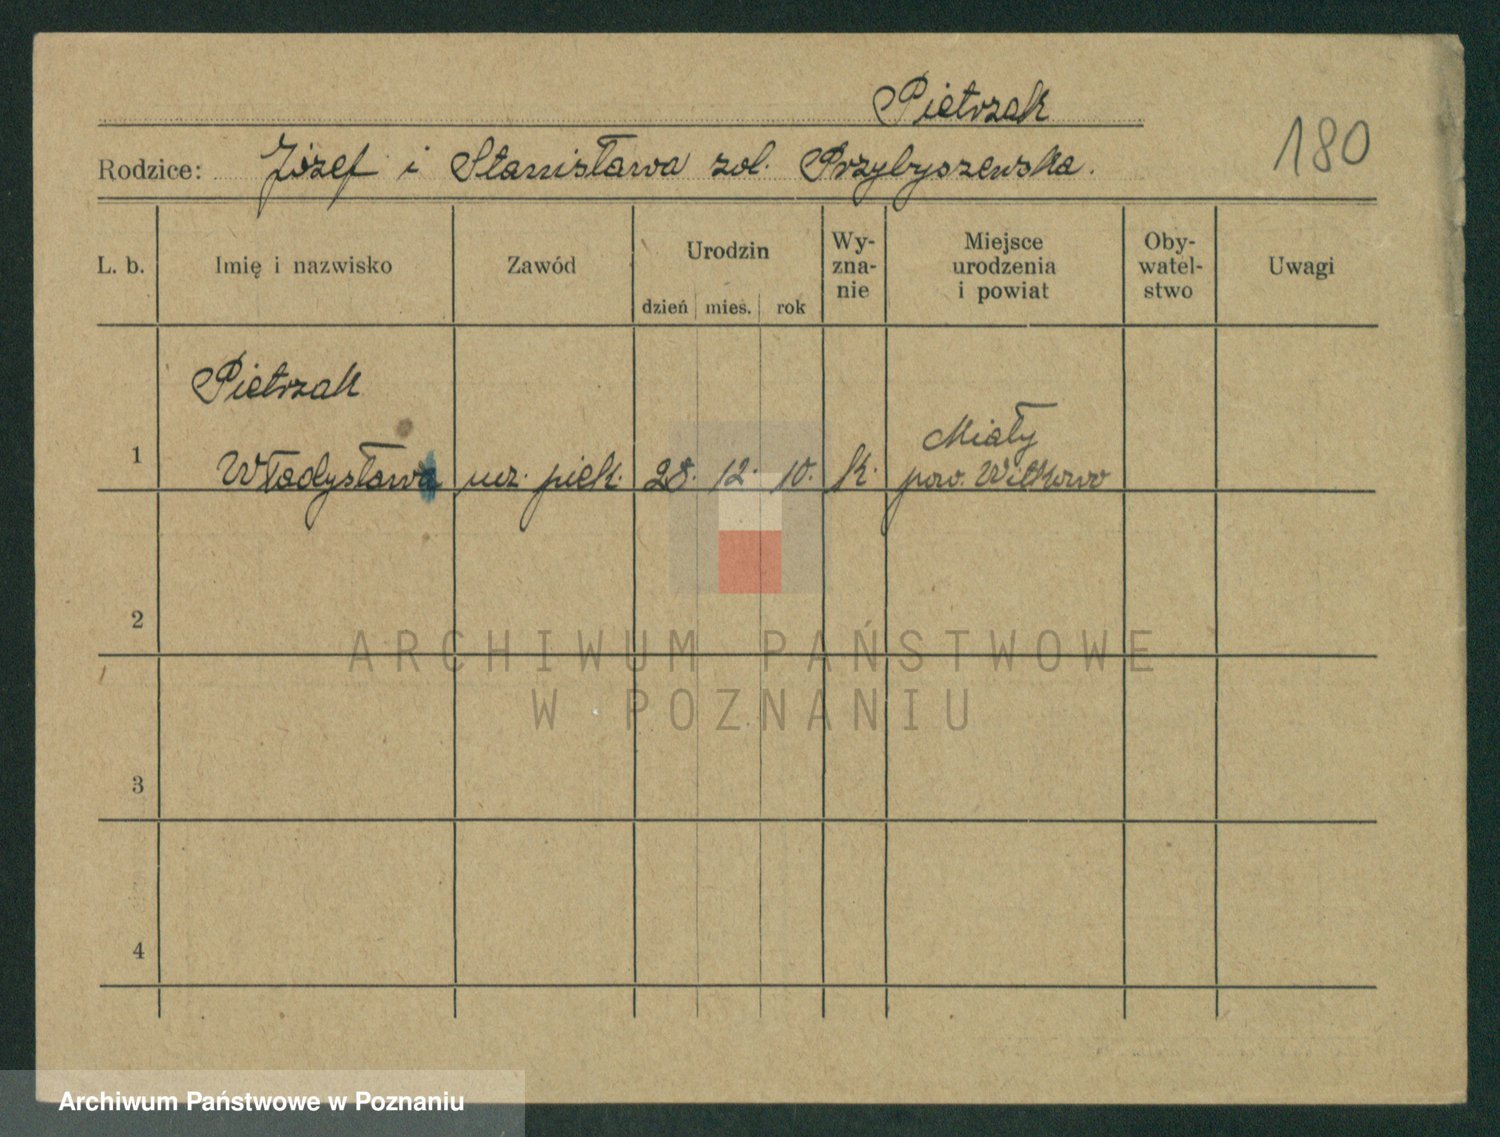 Pietrzak
180
Rodzice: Józef i Stanisława zol. Przybyszewska.
L. b. Imię i nazwisko Zawód Urodzin Wy-zna-nie Miejsce urodzenia i powiat Oby-watel-stwo Uwagi
dzień mies. rok
Pietrzak
1 Władysława ucz. piek. 28. 12. 10. k. Miały
pow. Witkowo
2
ARCHIWUM PAŃSTWOWE
W POZNANIU
3
4
Archiwum Państwowe w Poznaniu